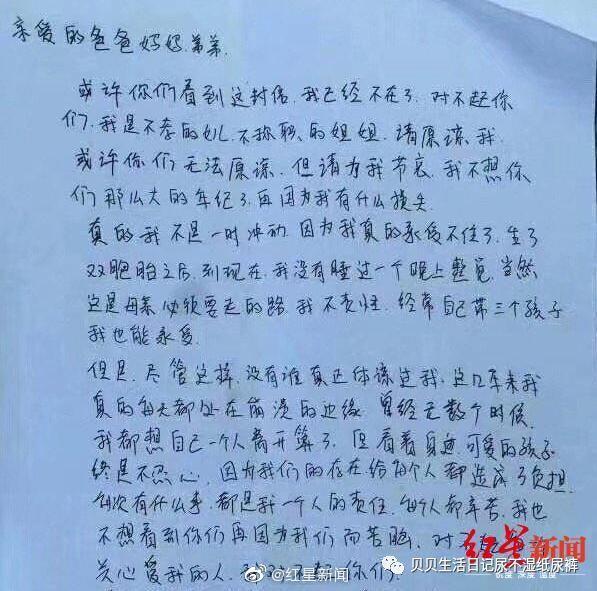 亲爱的爸爸妈妈.弟弟.
或许你们看到这封信.我已经不在了.对不起你
们.我是不孝的女儿.不称职的姐姐.请原谅我.
或许你们无法原谅.但请为我节哀.我不想你
们那么大的年纪了.再因为我有什么损失.
真的我不是一时冲动.因为我真的承受不住了.生了
双胞胎之后.到现在.我没有睡过一个晚上整觉.当然
这是母亲必须要走的路.我不责怪.经常自己带三个孩子
我也能承受.
但是.尽管这样.没有谁真正体谅过我.这几年来我
真的每天都处在崩溃的边缘.曾经无数个时候.
我都想自己一个人离开算了.但看着身边可爱的孩子
终是不忍心.因为我们的存在给每个人都造成了负担.
每次有什么事.都是我一个人的责任.每个人都辛苦.我也
不想看到你们再因为我们而苦恼.对
关心爱我的人.你们.
红星新闻
热度 深度 温度
贝贝生活日记尿不湿纸尿裤
@红星新闻